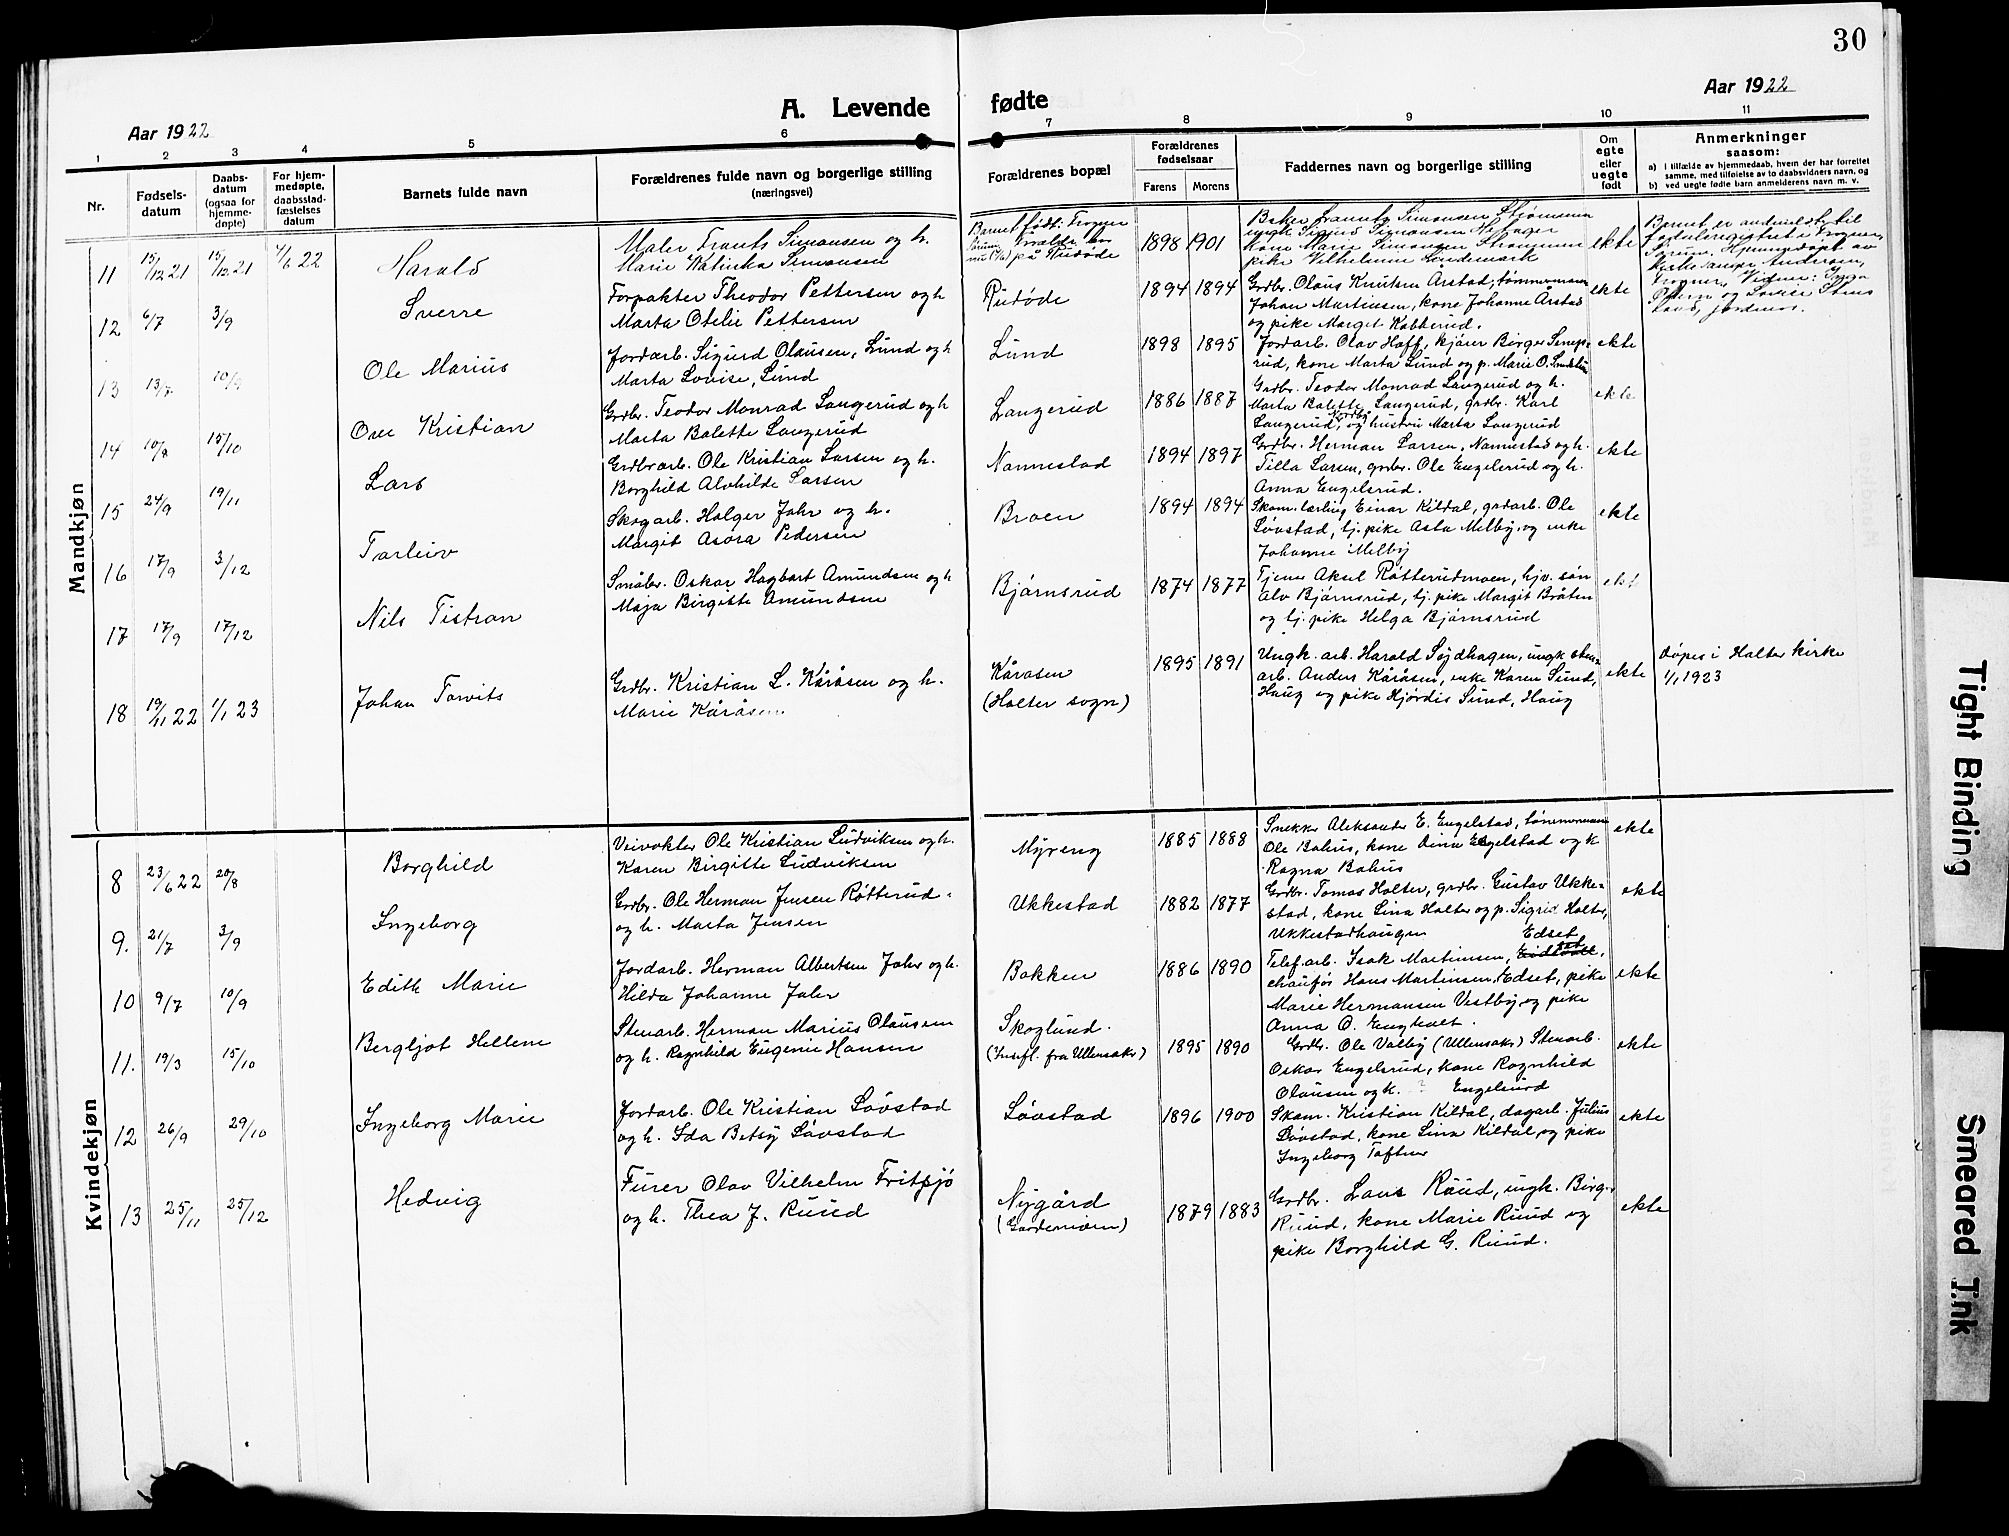 30
Aar 1922
A. Levende fødte
Aar 1922
1 2 3 4 5 6 7 8 9 10 11
Nr.
Fødsels-
datum
Daabs-
datum
(ogsaa for
hjemme-
døpte)
For hjem-
medøpte,
daabsstad-
fæstelses
datum
Barnets fulde navn
Forældrenes fulde navn og borgerlige stilling
(næringsvei)
Forældrenes bopæl
Forældrenes
fødselsaar
Farens Morens
Faddernes navn og borgerlige stilling
Om
egte
eller
uegte
født
Anmerkninger
saasom:
a) i tilfælde av hjemmedaab, hvem der har forrettet
samme, med tilføielse av to daabsvidners navn, og
b) ved uegte fødte barn anmelderens navn m. v.
Mandkjøn
11 15/12 21 15/12 21 4/6 22 Harald
Maler Frants Simonsen og h.
Marie Katinka Simonsen
Barnet født: Frogner
på Rudøde
1898 1901
Baker Laurits Simonsen Strømmen
ungk. Sigurd Simonsen
kone Marie Simonsen Strømmen
pike Vilhelmine Sandemark
ekte
Barnet er anmeldt til
fødselsregistret i Frogner,
Sørum. Hjemmedøpt av
Andersen,
Frogner. Vidner: Inga
og Lovise
jordmor.
12 6/7 3/9 Sverre
Forpakter Theodor Pettersen og h
Marta Otelie Pettersen
Rudøde
1894 1894
Grdbr. Olaus Knutsen Årstad, tømmermann
Johan Martinsen, kone Johanne Årstad
og pike Margit Kobberud.
ekte
13 13/7 10/9 Ole Marius
Jordarb. Sigurd Olausen, Lund og h
Marta Lovise, Lund
Lund
1898 1895
Jordarb. Olav Hoff, kjører Birger
rud, kone Marta Lund og p. Marie O.
ekte
14 10/8 15/10 Ove Kristian
Grdbr. Teodor Monrad Langerud og h
Marta Bolette Langerud
Langerud
1886 1887
Grdbr. Teodor Monrad Langerud og h.
Marta Bolette Langerud, grdbr. Karl
Langerud, Nordby og hustru Marta Langerud
ekte
15 24/9 19/11 Lars
Grdbrarb. Ole Kristian Larsen og h.
Borghild Alvhilde Larsen
Nannestad
1894 1897
Grdbr. Herman Larsen, Nannestad og h.
Tilla Larsen, grdbr. Ole Engelsrud og h.
Anna Engelsrud.
ekte
16 17/9 3/12 Torleiv
Skogarb. Holger Jahr og h.
Margit Asora Pedersen
Braen
1894 1894
Skom. lærling Einar Kildal, grdarb. Ole
Løvstad, tj. pike Asta Melby, og enke
Johanne Melby
ekte
17 17/9 17/12 Nils Tistran
Småbr. Oskar Hagbart Amundsen og h
Maja Birgitte Amundsen
Bjørnsrud
1874 1877
Tjener Aksel Røtterudmoen, hjv. søn
Alv Bjørnsrud, tj. pike Margit Bråten
og tj. pike Helga Bjørnsrud
ekt
18 19/11 22 1/1 23 Johan Torvits
Grdbr. Kristian L. Kåråsen og h.
Marie Kåråsen
Kåråsen
(Holter sogn)
1895 1891
Ungk. arb. Harald Søjdhagen, ungk sten-
arb. Anders Kåråsen, enke Karen Sund,
Haug og pike Hjørdis Sund, Haug
ekte
døpes i Holter kirke
1/1 1923
Kvindekjøn
8 23/6 22 20/8 Borghild
Veivokter Ole Kristian Ludviksen og h.
Karen Birgitte Ludviksen
Myreng
1885 1888
Snekker Aleksander E. Engelstad, tømmermann
Ole Bahus, kone Dina Engelstad og k
Ragna Bahus
ekte
9. 21/7 3/9 Ingeborg
Grdbr. Ole Herman Jensen Røtterud
og h. Marta Jensen
Ukkestad
1882 1877
Grdbr. Tomas Holter, grdbr. Gustav Ukke-
stad, kone Lina Holter og p. Sigrid Holter,
Ukkestadhaugen
ekte
10 9/7 10/9 Edith Marie
Jordarb. Herman Albertsen Jahr og h.
Hilda Johanne Jahr
Bakken
1886 1890
Edset
Telef.arb. Isak Martinsen,
chauffør Hans Martinsen, Edset, pike
Marie Hermansen Vestby, og pike
Anna O. Engholt.
ekte
11. 19/3 15/10 Bergljot Hellene
Stenarb. Herman Marius Olausen
og h. Ragnhild Eugenie Hansen
Skoglund.
(Innfl. fra Ullensaker)
1895 1890
Grdbr. Ole Valby (Ullensaker) Stenarb.
Oskar Engelsrud, kone Ragnhild
Olausen og k. ? Engelsrud
ekte
12 26/9 29/10 Ingeborg Marie
Jordarb. Ole Kristian Løvstad
og h. Ida Betsy Løvstad
Løvstad
1896 1900
Skom. Kristian Kildal, dagarb. Julius
Løvstad, kone Lina Kildal, og pike
Ingeborg Toftner
ekte
13 25/11 25/12 Hedvig
Furer Olav Vilhelm Fritsjø
og h. Thea J. Ruud
Nygård
(Gardermoen)
1879 1883
Grdbr. Lars Ruud, ungk. Birger
Ruud, kone Marie Ruud og
pike Borghild G. Ruud.
ekte
Tight Binding
Smeared Ink